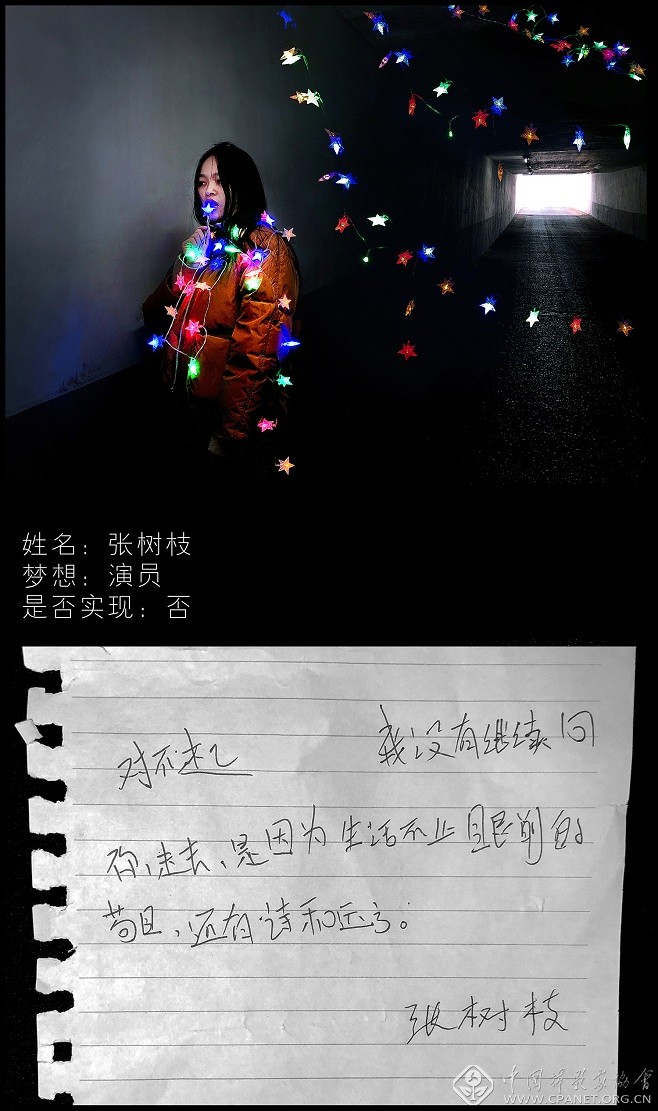 姓名：张树枝
梦想：演员
是否实现：否
对不起 我没有继续向
你走去，是因为生活不止眼前的
苟且，还有诗和远方。
张树枝
中国摄影家协会
WWW.CPANET.ORG.CN